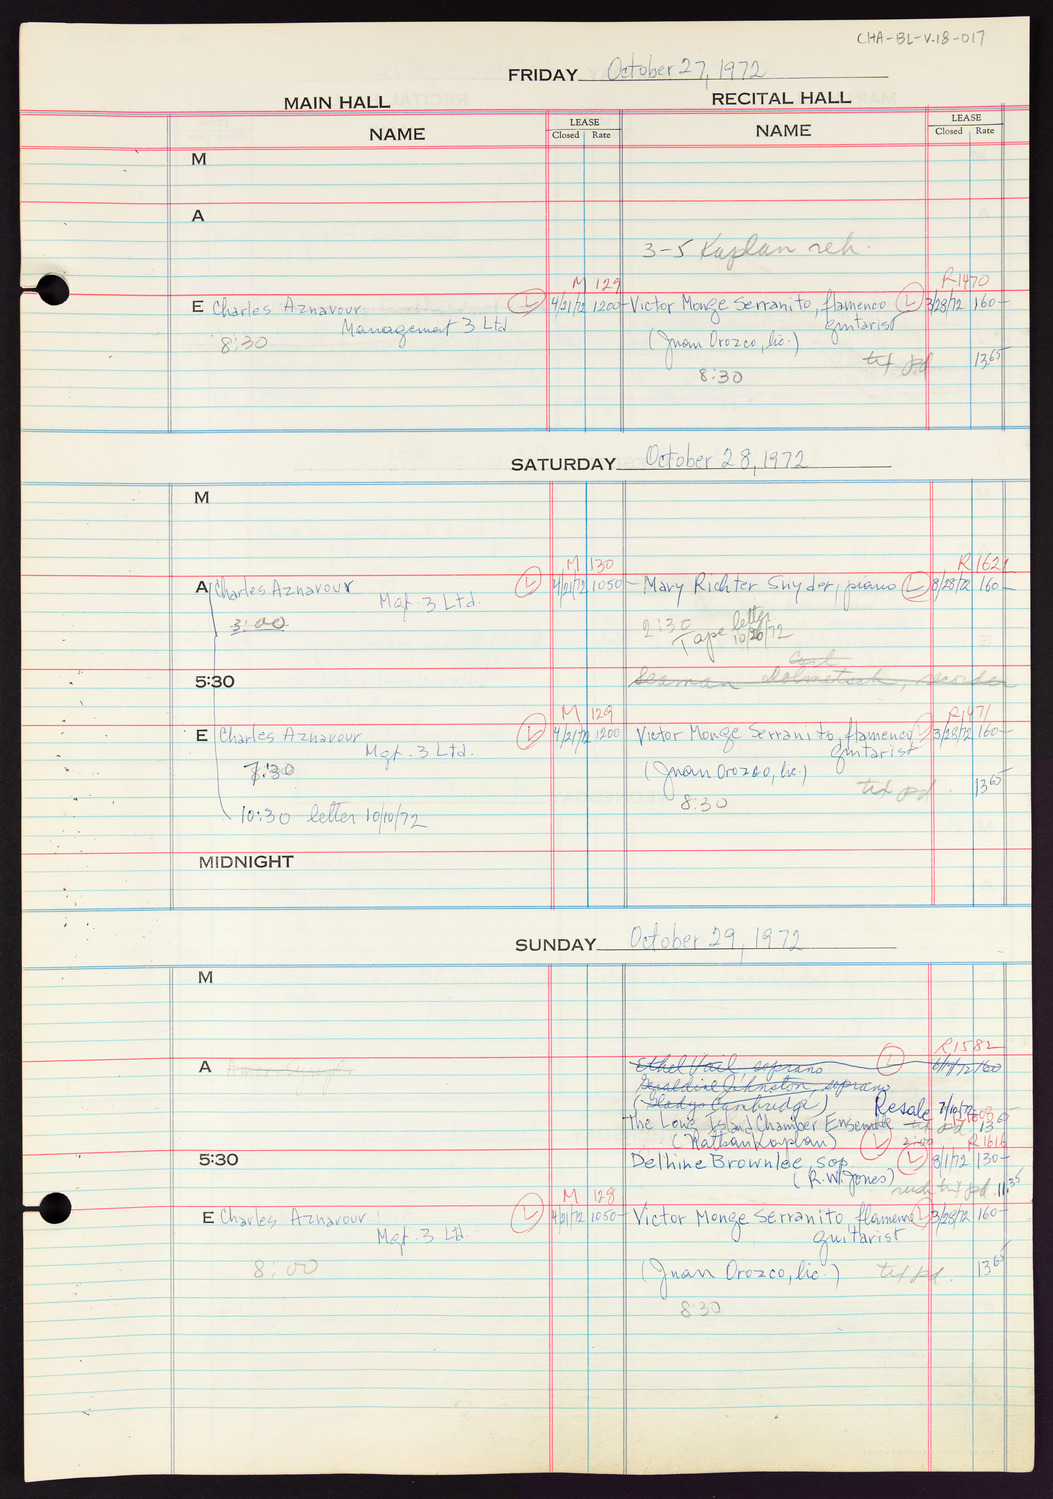 CHA-BL-V.18-017
FRIDAY October 27, 1972
MAIN HALL
RECITAL HALL
NAME
LEASE
Closed Rate
NAME
LEASE
Closed Rate
M
A
3-5 Kaplan reh.
M 129
R1470
E Charles Aznavour L 4/21/72 1200-
Management 3 Ltd.
8:30
Victor Monge Serranito, flamenco L 3/28/72 160-
guitarist
(Juan Orozco, lic.)
txt pd 13.65
8:30
SATURDAY October 28, 1972
M
M 130
R 1621
A Charles Aznavour L 4/21/72 1050-
Mgt. 3 Ltd.
3:00
Mary Richter Snyder, piano L 8/28/72 160-
2:30
Tape letter
10/20/72
5:30
Carl
Seaman Dolmetsch, recorder
M 129
R1471
E Charles Aznavour L 4/21/72 1200
Mgt. 3 Ltd.
7:30
10:30 letter 10/10/72
Victor Monge Serranito, flamenco L 3/28/72 160-
guitarist
(Juan Orozco, lic.)
txt pd. 13.65
8:30
MIDNIGHT
SUNDAY October 29, 1972
M
R1582
A
Ethel Vail soprano L 160
Geraldine Johnston, soprano
(Gladys Cambridge)
Resale 7/10/72
R1608
The Long Island Chamber Ensemble txt pd. 13.65
(Nathan Kaplan) L 2:00
R1616
5:30
Delhine Brownlee, sop L 8/1/72 130-
(R.W. Jones)
txt pd. 11.35
M 128
E Charles Aznavour L 4/21/72 1050-
Mgt. 3 Ltd.
8:00
Victor Monge Serranito, flamenco L 3/28/72 160-
guitarist
(Juan Orozco, lic.) txt pd. 13.65
8:30